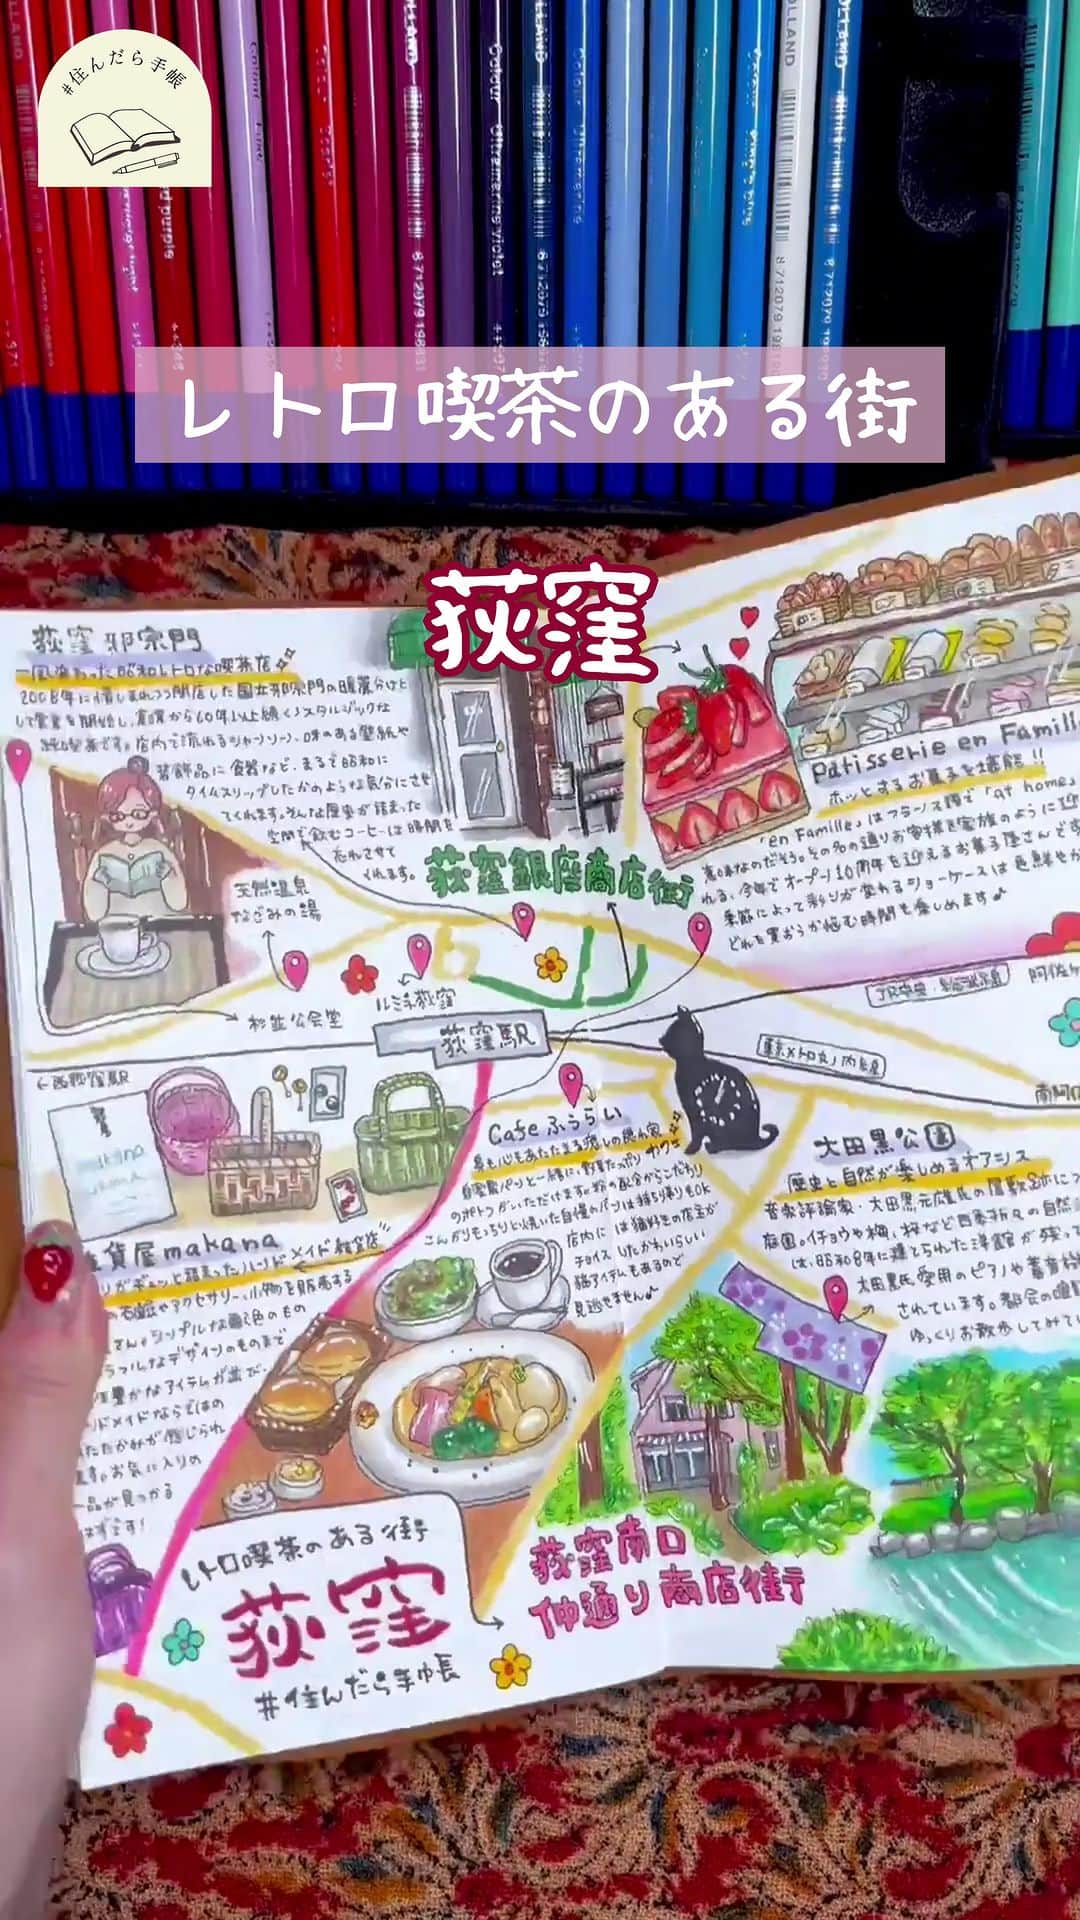 #住んだら手帳
レトロ喫茶のある街
荻窪
荻窪 邪宗門
一風変わった昭和レトロな喫茶店
2008年に惜しまれつつ閉店した国立邪宗門の暖簾分けと
して営業を開始し、
装飾品に食器など、まるで昭和に
タイムスリップしたかのような気分にさせ
てくれます。そんな歴史が詰まった
空間で飲むコーヒーは時間を
忘れさせて
くれます。
荻窪銀座商店街
天然温泉
なごみの湯
杉並公会堂
ルミネ荻窪
荻窪駅
←西荻窪駅
Patisserie en Famill
ホッとするお菓子を堪能!!
「en Famille」はフランス語で「at home」
れる、今年でオープン10周年を迎えるお菓子屋さんです
季節によって彩りが変わるショーケースは色鮮やか
どれを買おうか悩む時間も楽しめます♪
JR中央・総武線
阿佐ヶ
東京メトロ丸ノ内線
南阿佐
Cafe ふうらい
身も心もあたたまる癒しの隠れ家
自家製パンと一緒に、野菜たっぷり
のポトフがいただけます。粉の配合からこだわり
こんがりもっちりと焼いた自慢のパンは持ち帰りもOK
店内には猫好きの店主が
チョイスしたかわいらしい
猫アイテムもあるので
見逃せません♪
大田黒公園
歴史と自然が楽しめるオアシス
音楽評論家・大田黒元雄氏の屋敷跡につ
庭園。イチョウや梅、桜など四季折々の自然
は、昭和8年に建てられた洋館が残って
大田黒氏愛用のピアノや蓄音
されています。都会の喧騒
ゆっくりお散歩してみて
貨屋makana
りがギュッと詰まったハンドメイド雑貨店
布雑やアクセサリー、小物を販売する
さん。シンプルな単色のもの
ラフルなデザインのものまで
性豊かなアイテムが並び、
ンドメイドならではの
たたかみが感じられ
ます。お気に入りの
一品が見つかる
はずです!
レトロ喫茶のある街
荻窪
#住んだら手帳
荻窪南口
仲通り商店街